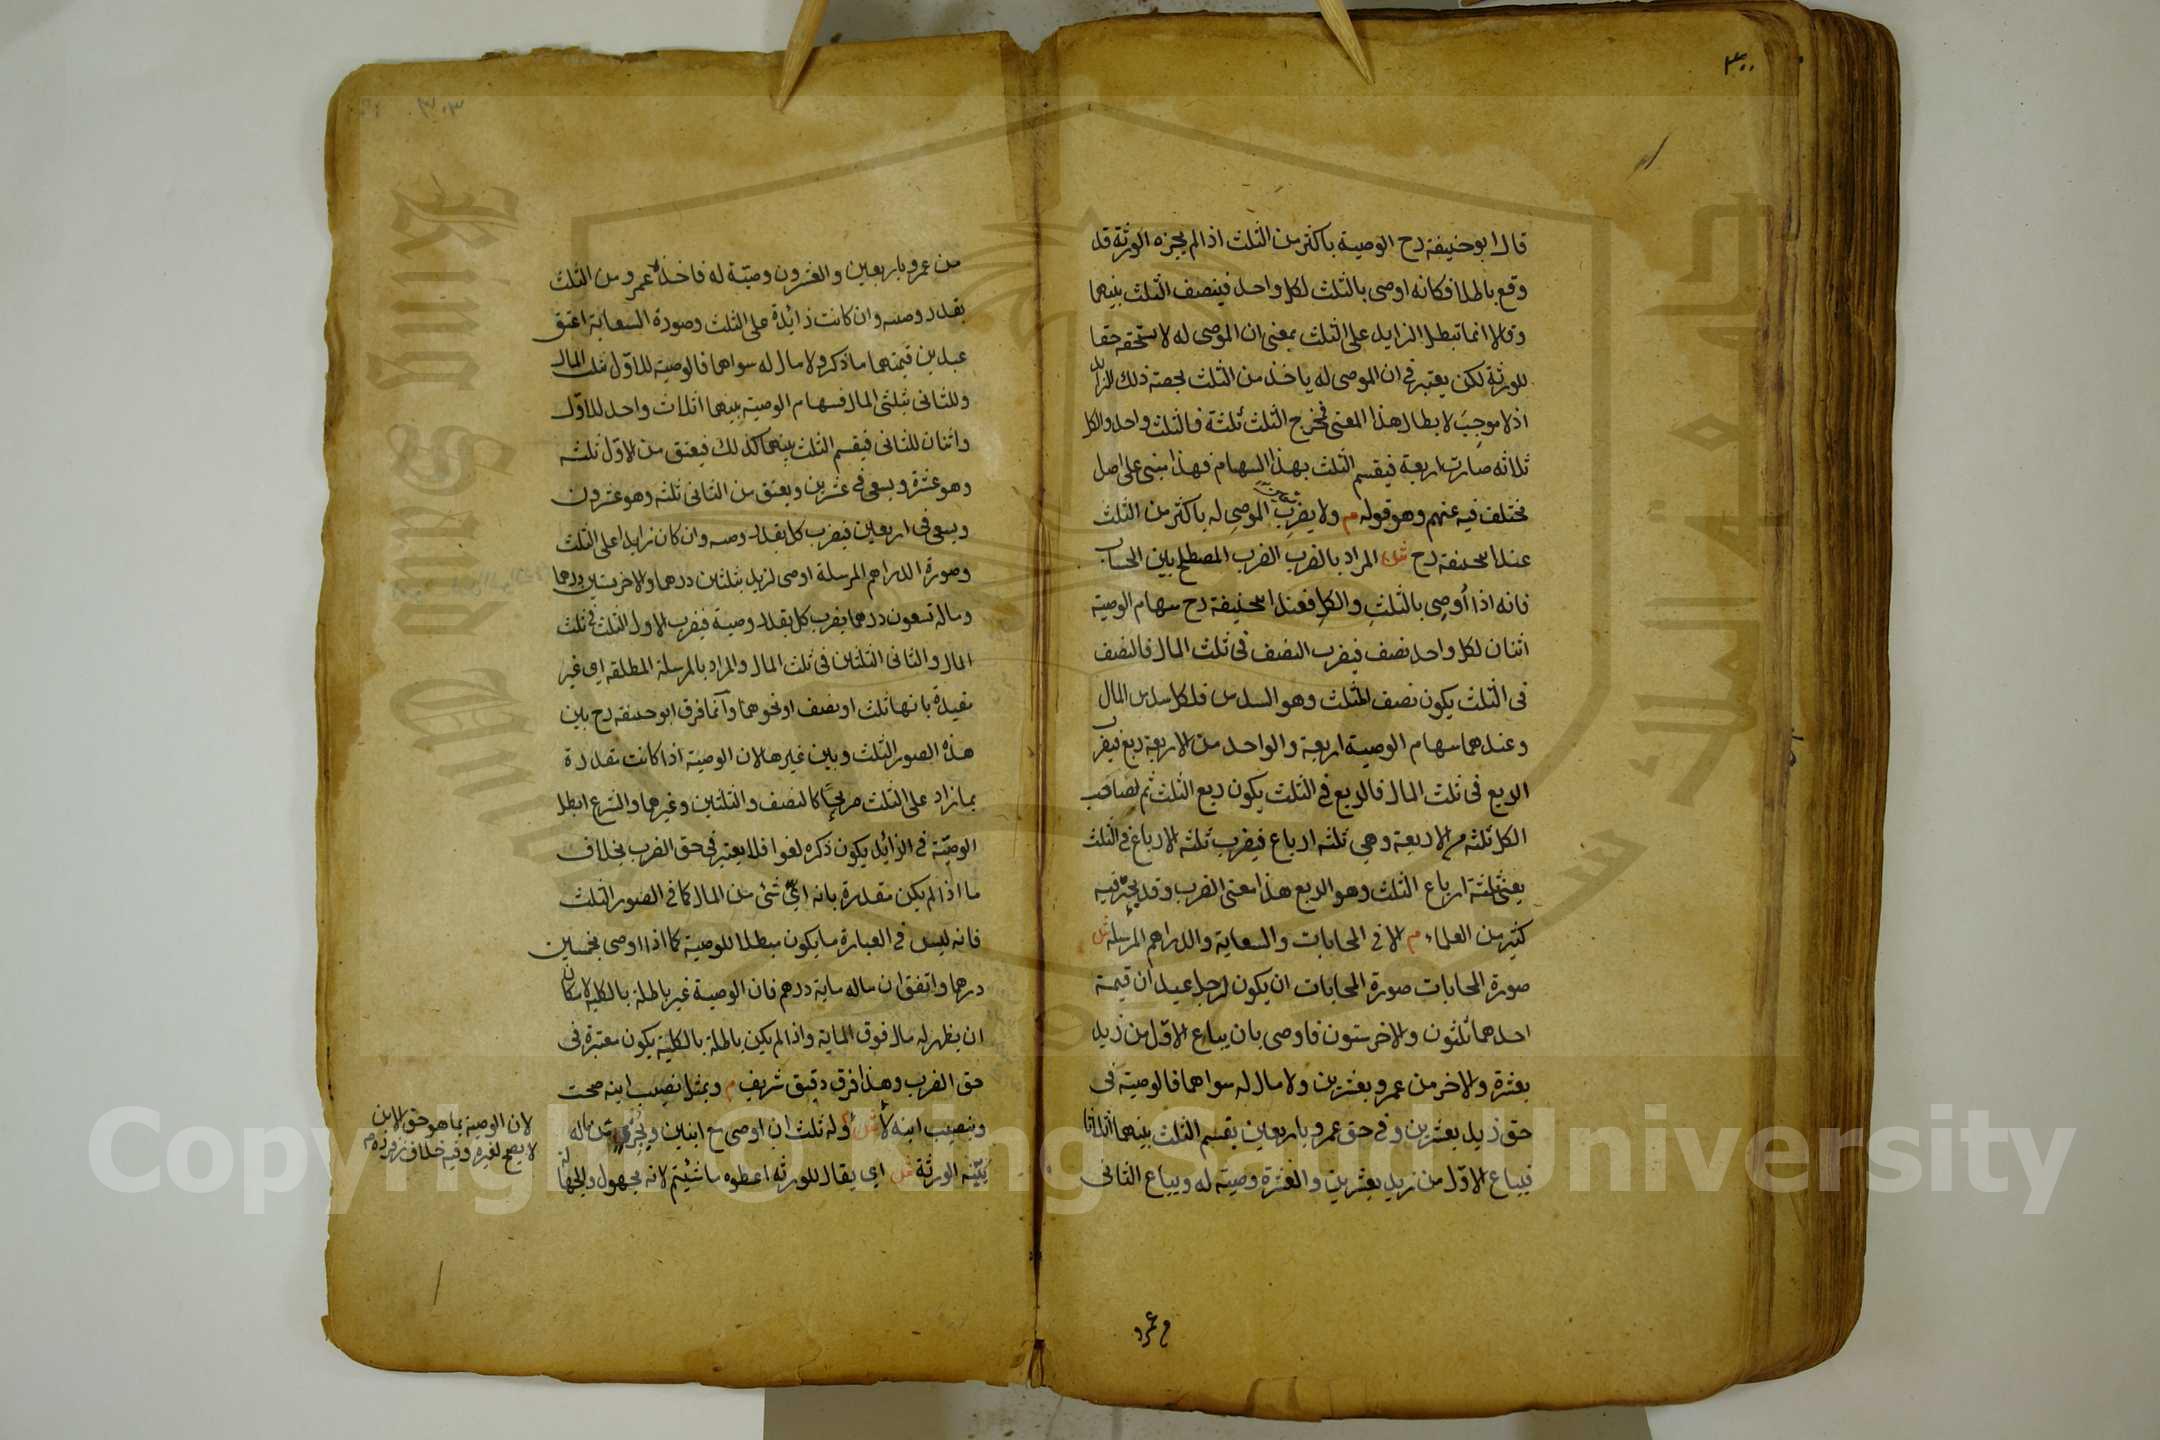 ٣٠٠
قال ابو حنيفة رح الوصية باكثر من الثلث اذا لم يجزه الورثة قد
وقع باطلا فكانه اوصى بالثلث لكل واحد فينصف الثلث بينهما
وقالا انما تبطل الزايد على الثلث بمعنى ان الموصى له لا يستحقه حقا
للورثة لكن يعتبر في ان الموصى له ياخذ من الثلث بحصة ذلك الزائد
اذ لا موجب لابطال هذا المعنى فمخرج الثلث ثلثة فالثلث واحد والكل
ثلاثة صارت اربعة فيقسم الثلث بهذا السهام فهذا مبنى على اصل
مختلف فيه عنهم وهو قوله م ولا يضرب الموصى له باكثر من الثلث
عند ابى حنيفة رح ش المراد بالضرب الضرب المصطلح بين الحساب
فانه اذا اوصى بالثلث والكل فعند ابى حنيفة رح سهام الوصية
اثنان لكل واحد نصف فيضرب النصف فى ثلث المال فالنصف
فى الثلث يكون نصف الثلث وهو السدس فلكل سدس المال
وعندهما سهام الوصية اربعة والواحد من الاربعة ربع فيضرب
الربع فى ثلث المال فالربع فى الثلث يكون ربع الثلث ثم لصاحب
الكل ثلثة من الاربعة وهى ثلثة ارباع فيضرب ثلثة الارباع فى الثلث
يعنى ثلثة ارباع الثلث وهو الربع هذا معنى الضرب وقد تحير فيه
كثير من العلماء م الا فى المحابات والسعاية والدراهم المرسلة ش
صورة المحابات صورة المحابات ان يكون لرجل عبدان قيمة
احدهما ثلثون والاخر ستون فاوصى بان يباع الاول من زيد
بعشرة والاخر من عمرو بعشرين ولا مال له سواهما فالوصية فى
حق زيد بعشرين وفى حق عمرو باربعين يقسم الثلث بينهما اثلاثا
فيباع الاول من زيد بعشرين والعشرة وصية له ويباع الثانى
من عمرو
٣٠٣
من عمرو باربعين والعشرون وصية له فاخذ عمرو من الثلث
بقدر وصيته وان كانت زائدة على الثلث وصورة السعاية اعتق
عبدين قيمتهما ما ذكر ولا مال له سواهما فالوصية للاول بثلث المال
وللثانى بثلثى المال فسهام الوصية بينهما اثلاث واحد للاول
واثنان للثانى فيقسم الثلث بينهما كذلك فيعتق من الاول ثلثه
وهو عشرة ويسعى فى عشرين ويعتق من الثانى ثلثه وهو عشرون
ويسعى فى اربعين فيضرب كل بقدر وصيته وان كان زايدا على الثلث
وصورة الدراهم المرسلة اوصى لزيد بثلثين درهما والاخر بستين درهما
وماله تسعون درهما يضرب كل بقدر وصيته فيضرب الاول الثلث فى ثلث
المال والثانى الثلثين فى ثلث المال والمراد بالمرسلة المطلقة اى غير
مقيدة بانها ثلث او نصف او نحوهما وانما فرق ابو حنيفة رح بين
هذه الصور الثلث وبين غيرها لان الوصية اذا كانت مقدرة
بما زاد على الثلث صريحا كالنصف والثلثين وغيرهما والشرع ابطل
الوصية فى الزائد يكون ذكره لغوا فلا يعتبر فى حق الضرب بخلاف
ما اذا لم يكن مقدرة بانه اى شئ من المال كما فى الصور الثلث
فانه ليس فى العبارة ما يكون مبطلا للوصية كما اذا اوصى بخمسين
درهما واتفق ان ماله ماية درهم فان الوصية غير باطلة بالكلية لامكان
ان يظهر له مال فوق الماية واذا لم يكن باطلة بالكلية يكون معتبرة فى
حق الضرب وهذا فرق دقيق شريف م وبمثل نصيب ابنه صحت
وبنصيب ابنه لا ش وله ثلث ان اوصى مع ابنين وبجزء من ماله
يبينه الورثة ش اى يقال للورثة اعطوه ما شئتم لانه مجهول والجهالة
لان الوصية بما هو حق الابن
لا يصح لغيره وفيه خلاف زفر رح